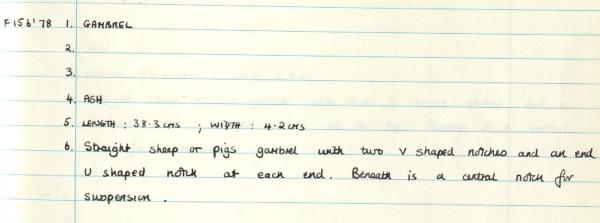 F156'78 1. GAMBREL
2.
3.
4. ASH
5. LENGTH : 38.3 CMS ; WIDTH : 4.2 CMS
6. Straight sheep or pigs gambrel with two V shaped notches and an end
U shaped notch at each end. Beneath is a central notch for
suspension.